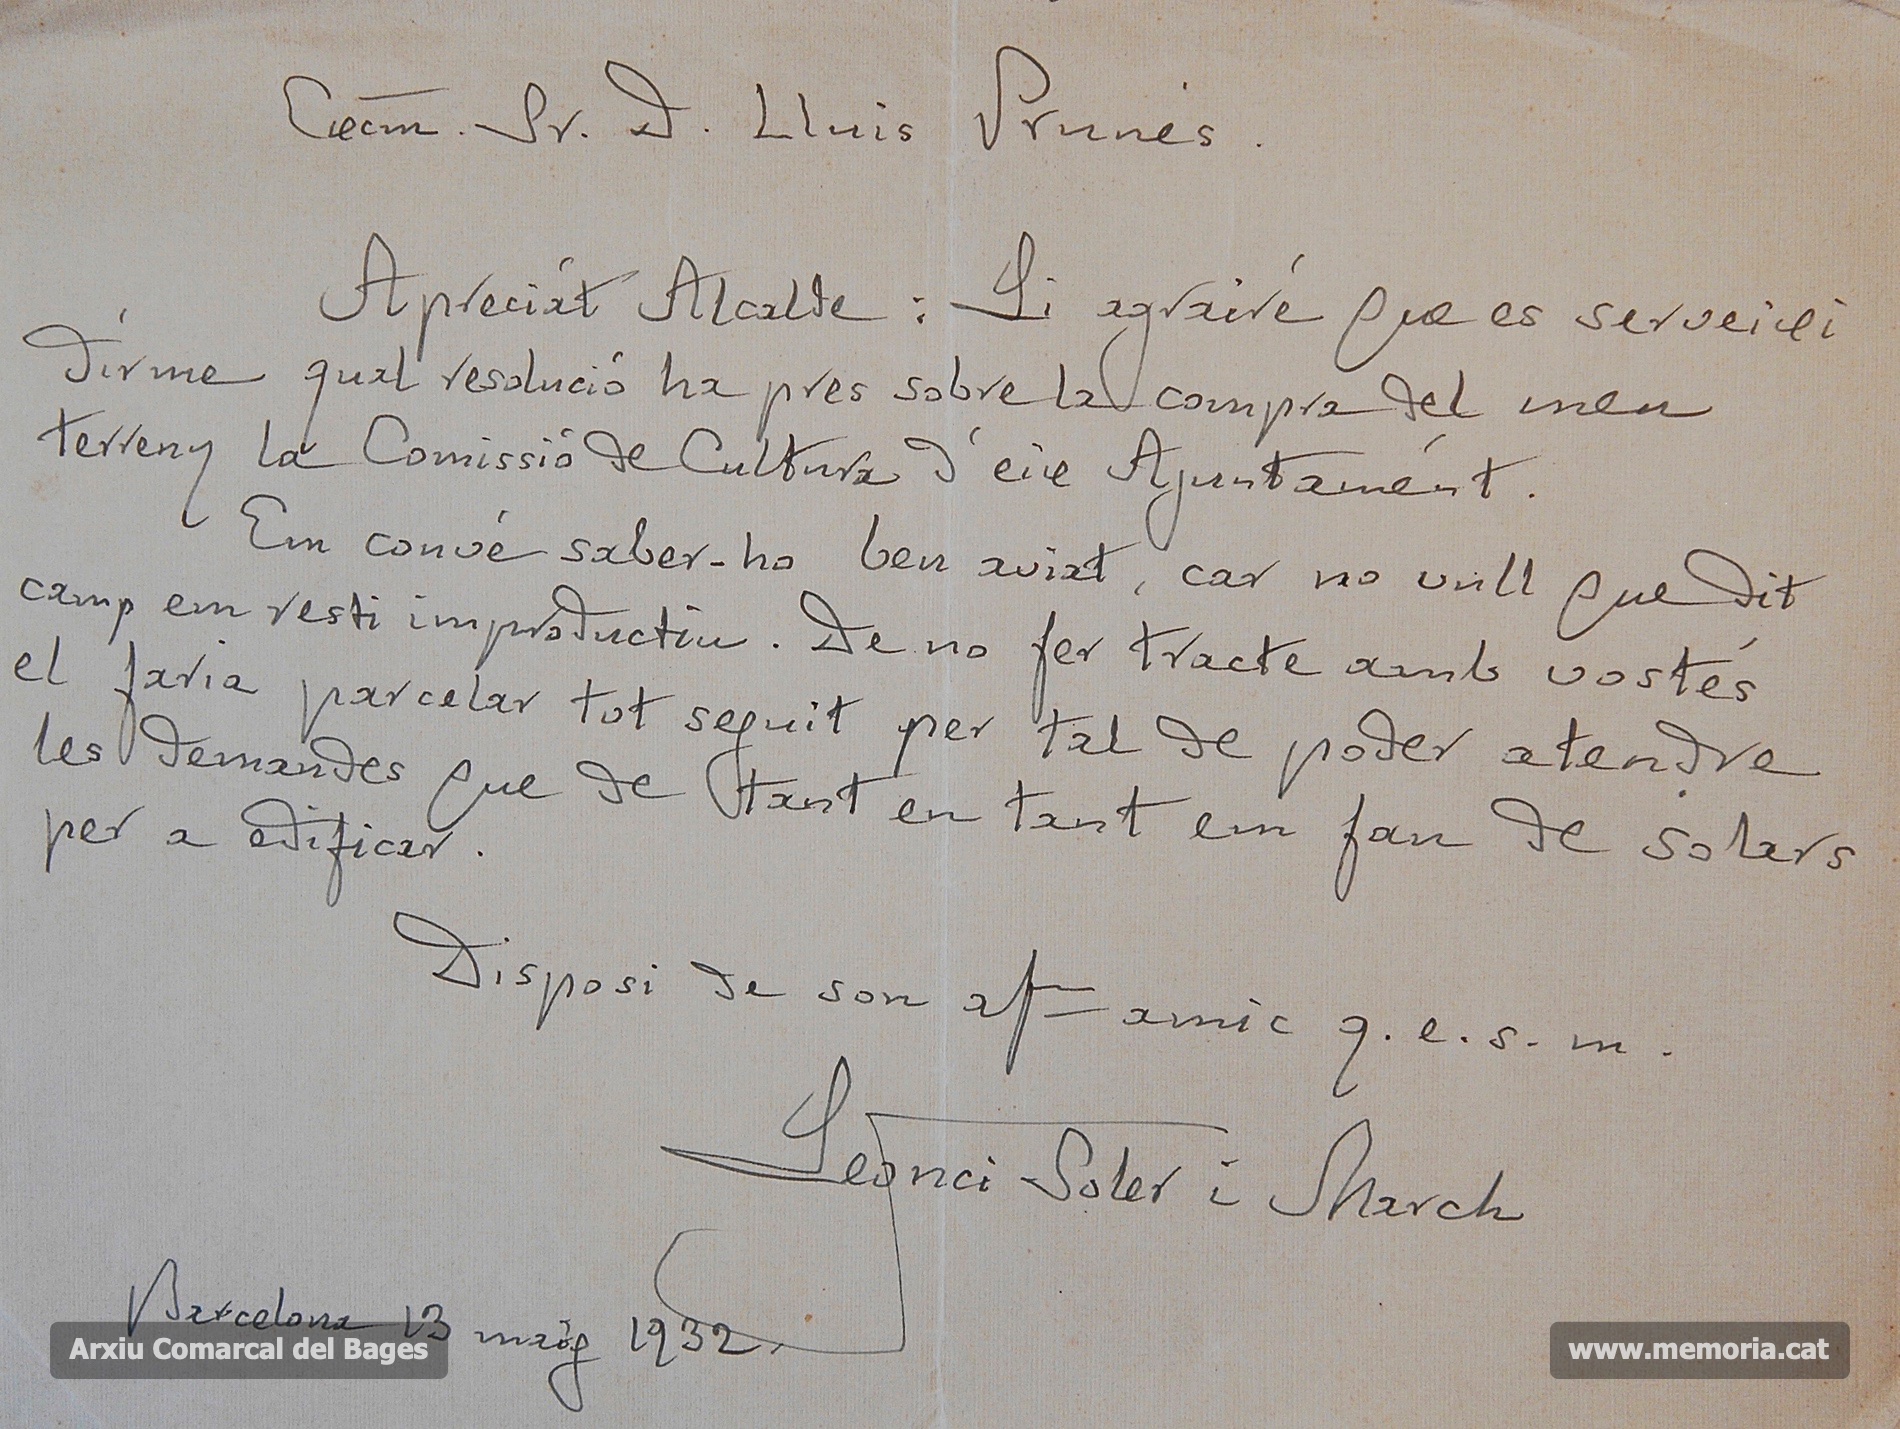 Excm. Sr. D. Lluis Prunés.
Apreciát Alcalde: Li agrairé que es serveixi
dírme qual resolució ha pres sobre la compra del meu
terreny la Comissió de Cultura d'eixe Ajuntamént.
Em convé saber-ho ben aviat, car no vull que dit
camp em resti improductiu. De no fer tracte amb vostés
el faria parcelar tot seguit per tal de poder atendre
les demandes que de tant en tant em fan de solars
per a edificar.
Disposi de son afm amic q.e.s.m.
Leonci Soler i March
Barcelona 13 maig 1932.
Arxiu Comarcal del Bages
www.memoria.cat